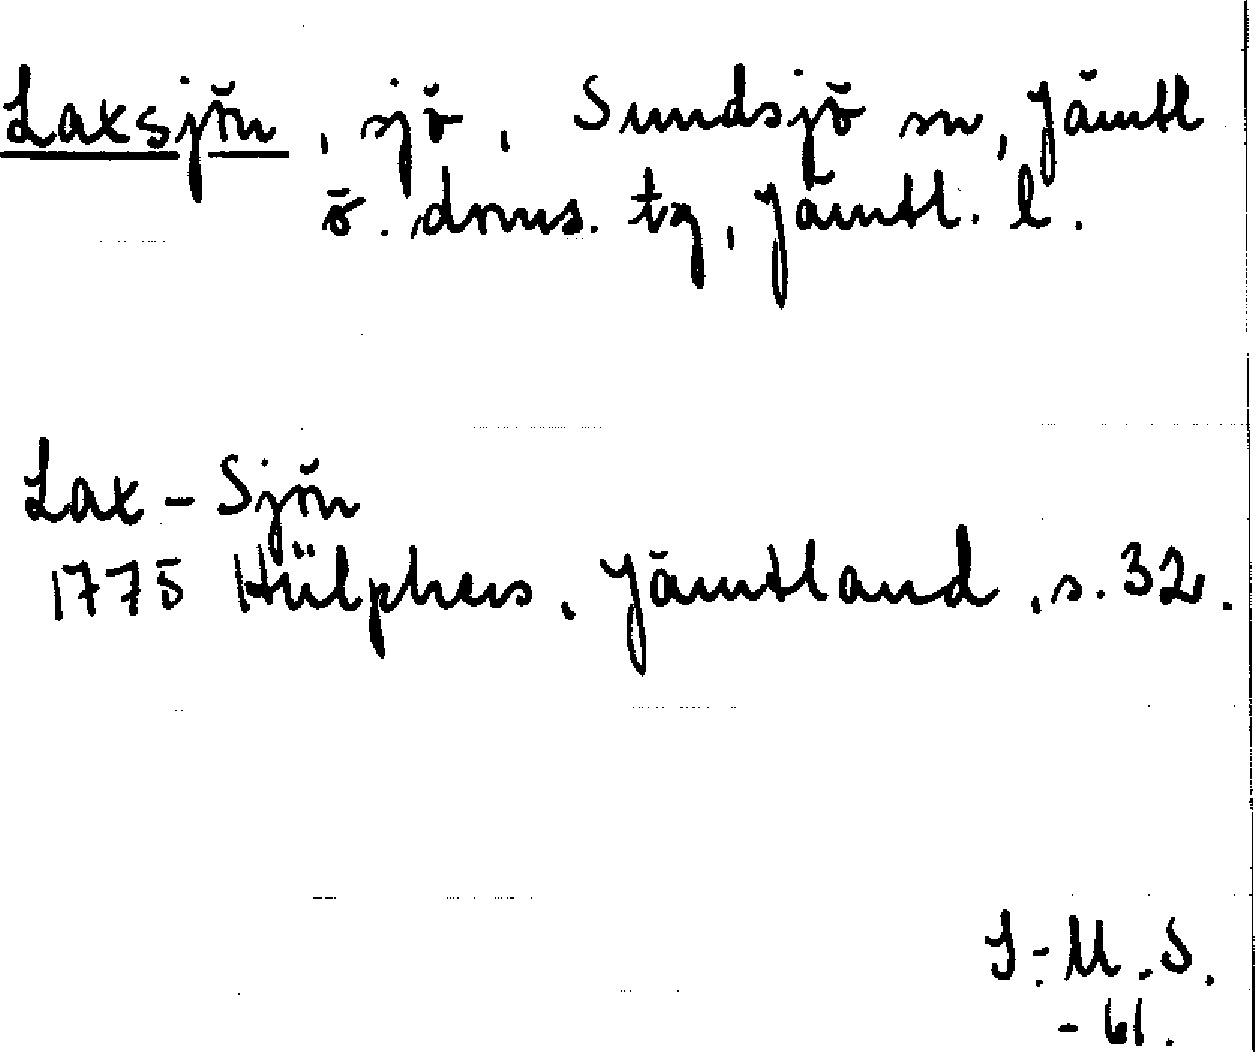 Laxsjön, sjö, Sundsjö sn, Jämtl
ö. dmns. tg, Jämtl. l.
Lax-Sjön
1775 Hülphers, Jämtland, s. 32.
I-M.S.
-61.